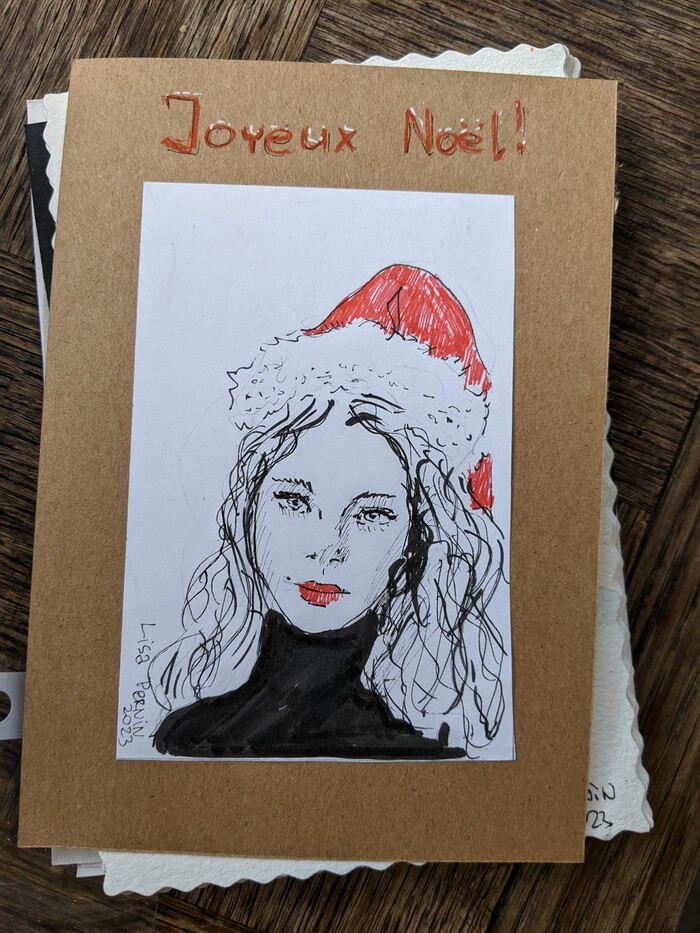 Joyeux Noël!
Lisa PERVIN
2023